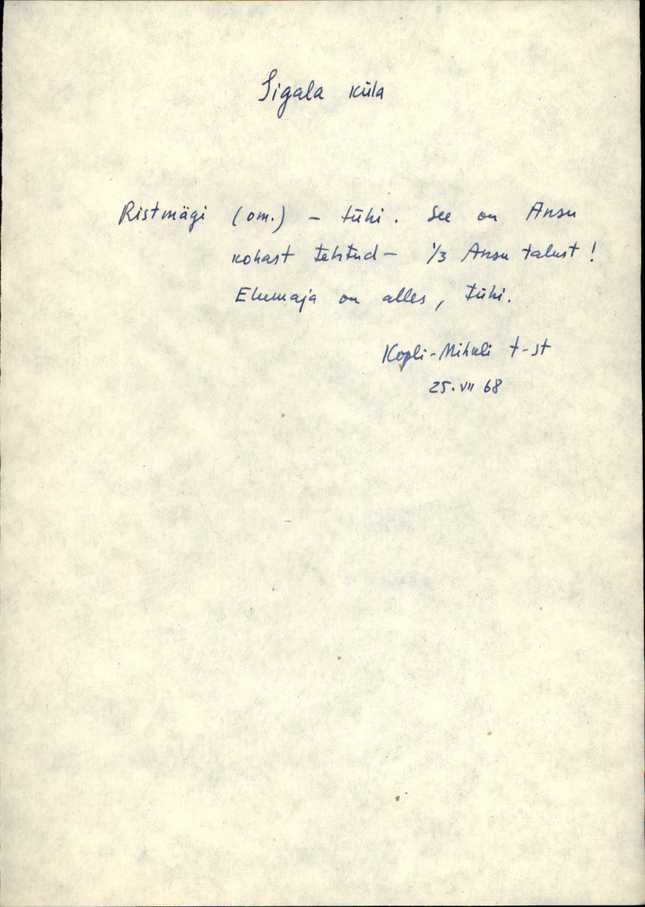 Sigala küla
Ristmägi (om.) – tühi. See on Ansu
kohast tehtud – 1/3 Ansu talust!
Elumaja on alles, tühi.
Kopli-Mihkli t-st
25. VII 68